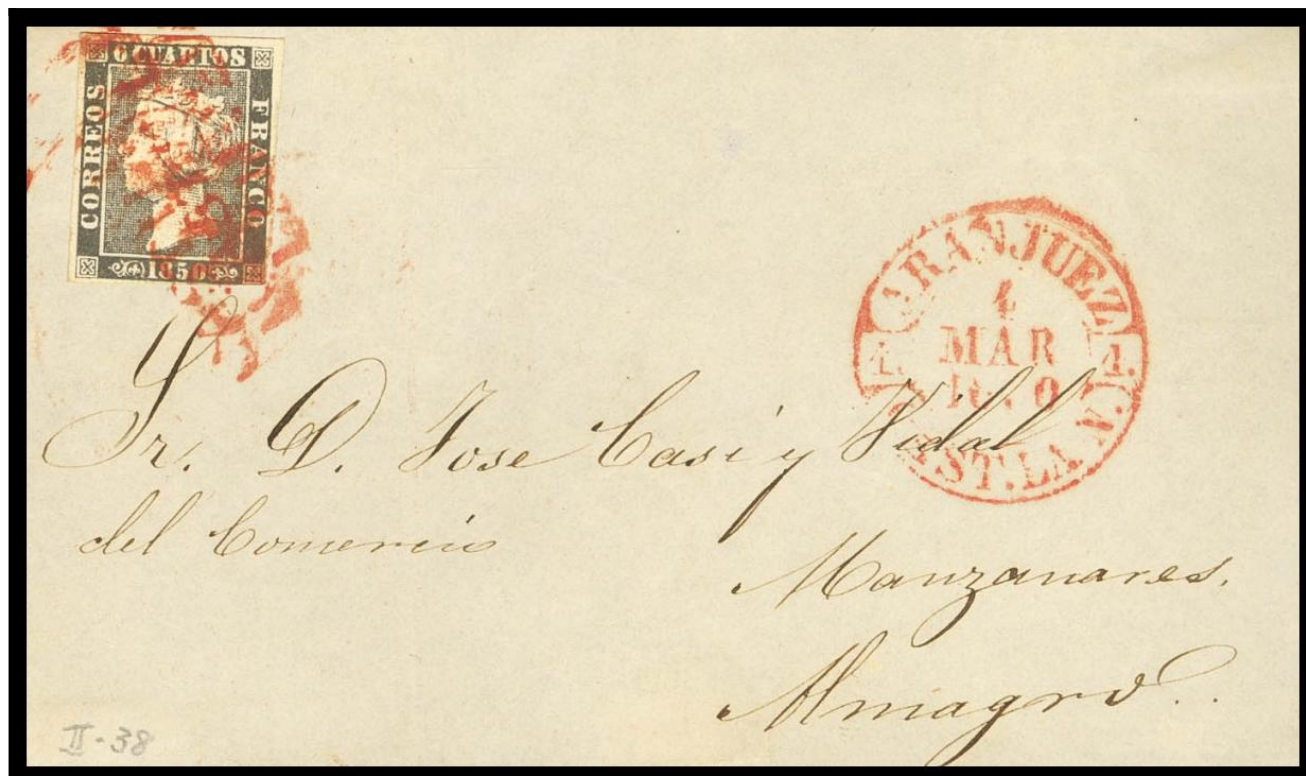 6 CUARTOS
CORREOS
FRANCO
1850
ARANJUEZ
4
MAR
1 1
CAST. LA N.
Sr. D. Jose Casi y Vidal
del Comercio
Manzanares.
Almagro..
II-38